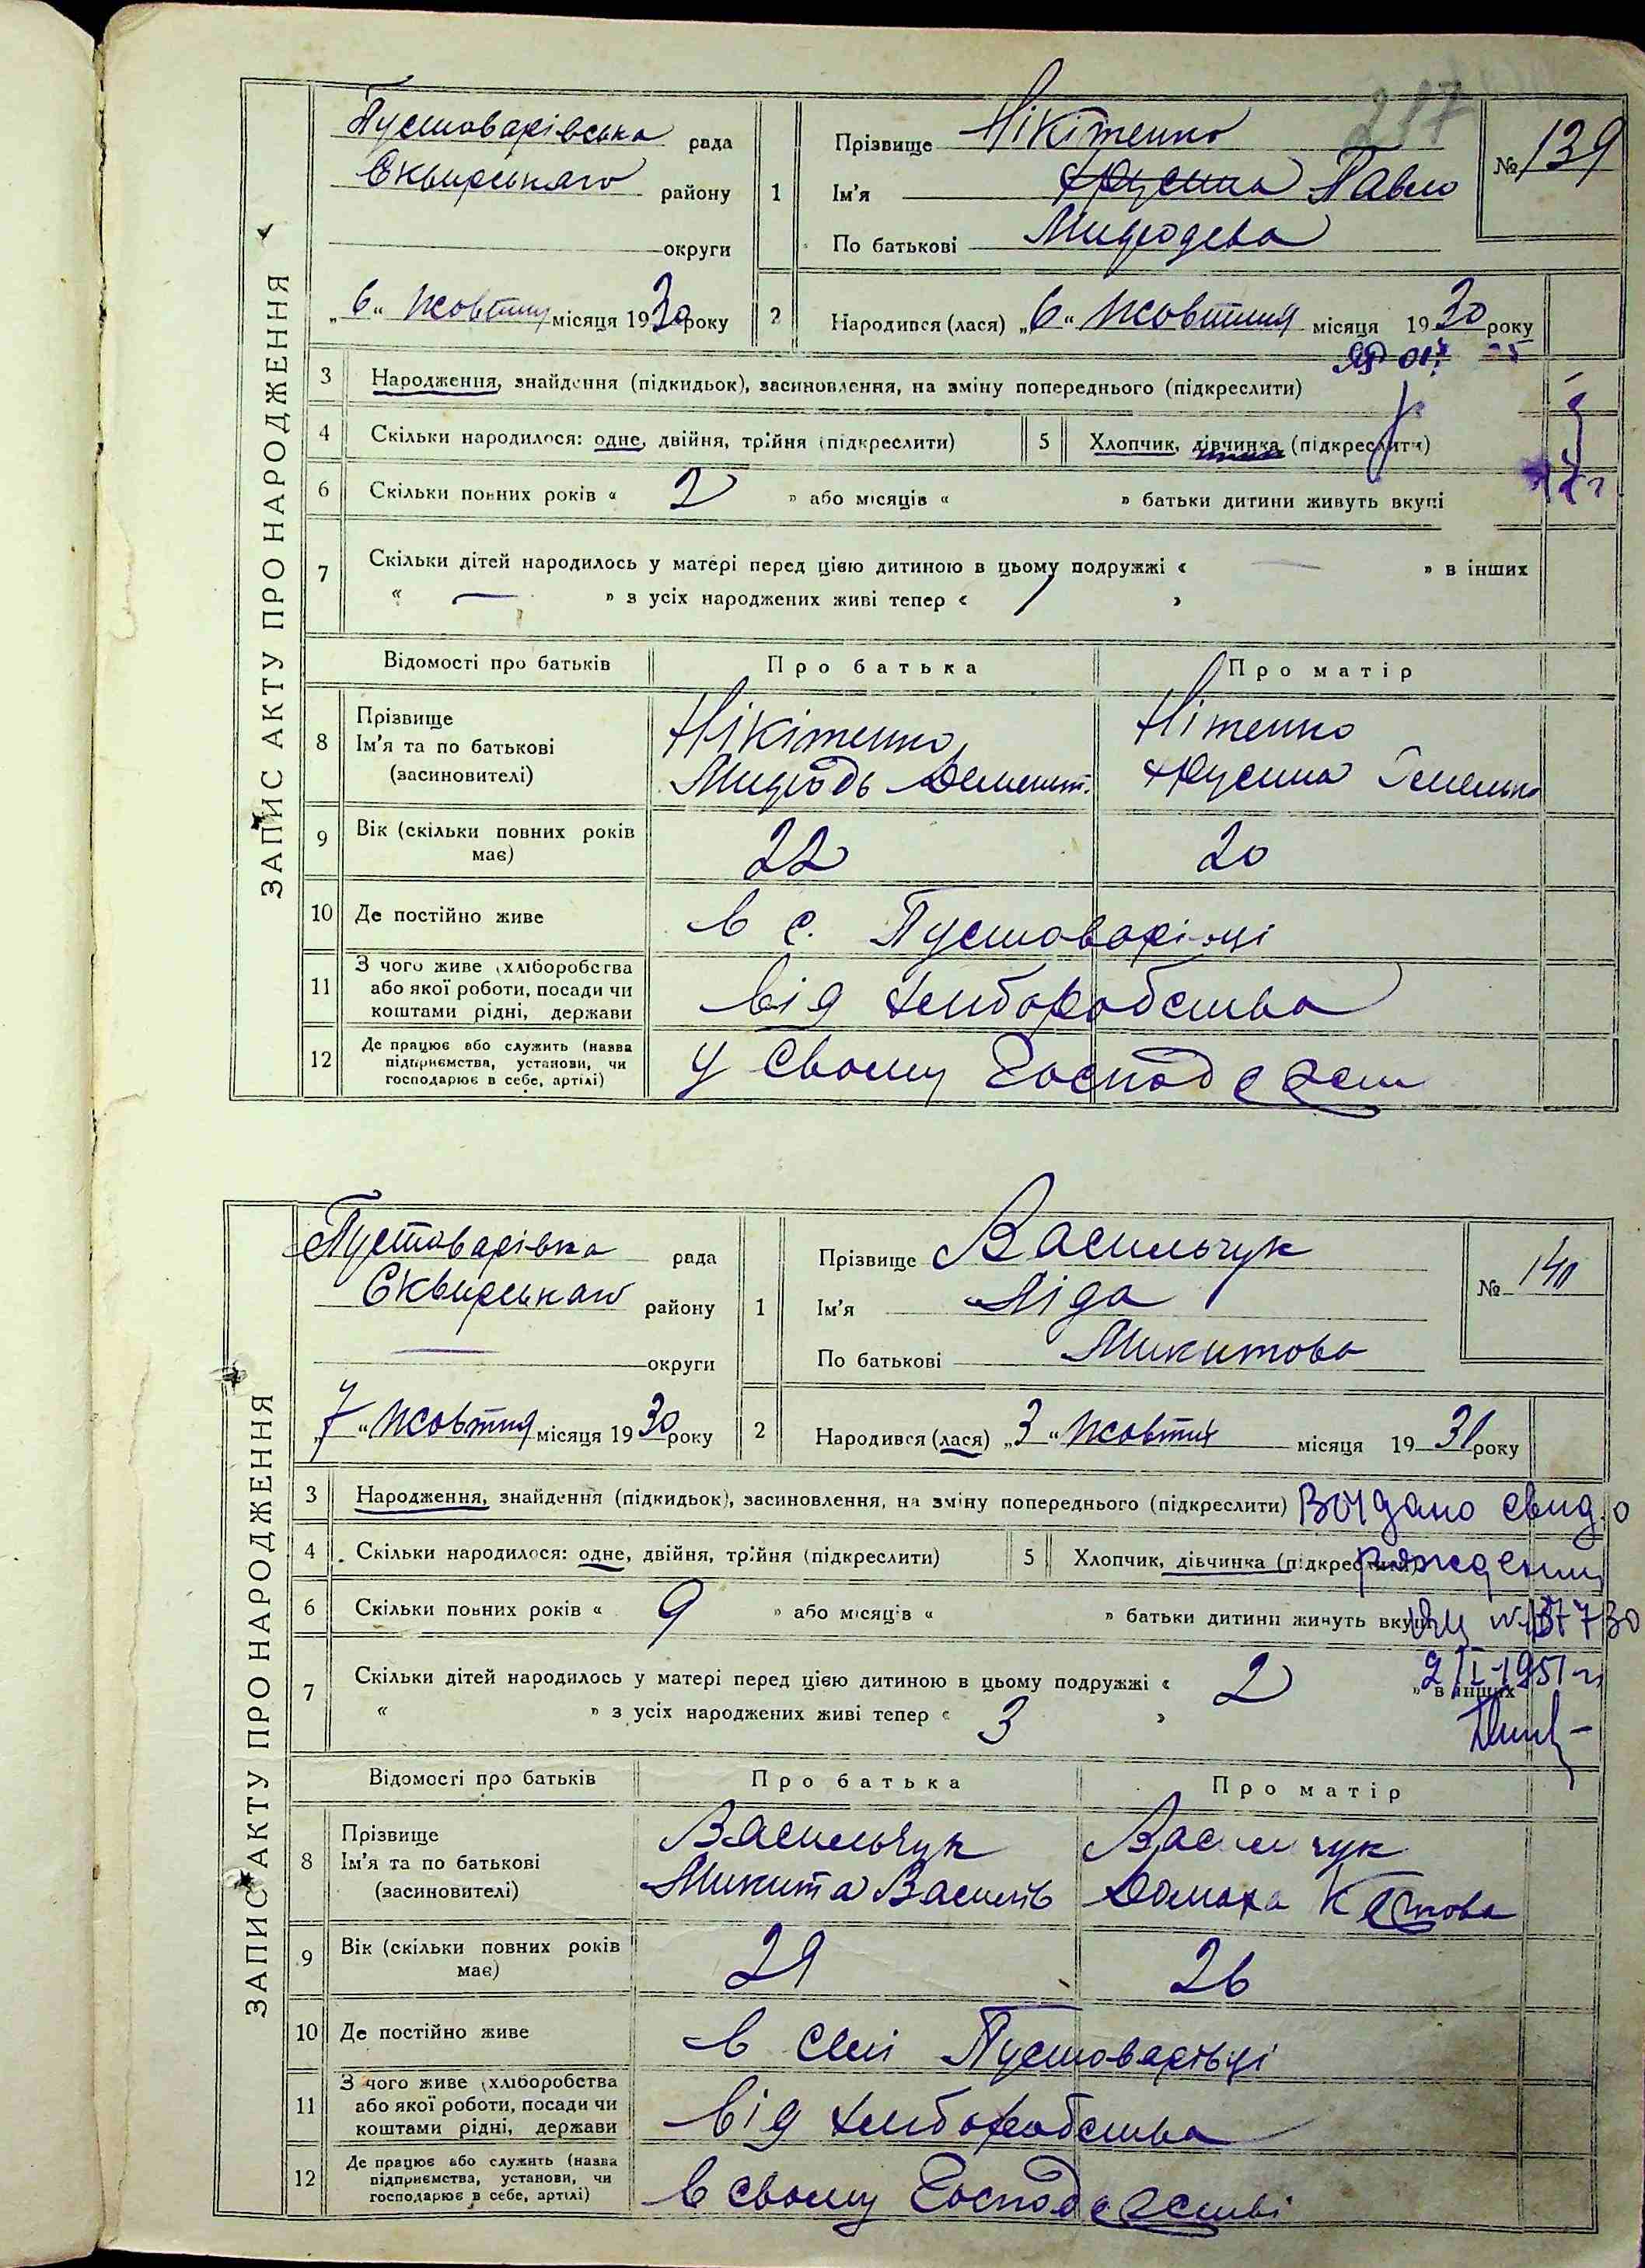 217
ЗАПИС АКТУ ПРО НАРОДЖЕННЯ
Пустоварівська рада
Сквирського району
округи
„6“ жовтня місяця 1930 року
1
Прізвище Нікітенко
Ім'я Хрусина Павло
По батькові Мифодева
№ 139
2
Народився (лася) „6“ жовтня місяця 1930 року
3 Народження, знайдення (підкидьок), засиновлення, на зміну попереднього (підкреслити)
4 Скільки народилося: одне, двійня, трійня (підкреслити)
5 Хлопчик, дівчинка (підкреслити)
6 Скільки повних років « 2 » або місяців « » батьки дитини живуть вкупі
7 Скільки дітей народилось у матері перед цією дитиною в цьому подружжі « — » в інших
« — » з усіх народжених живі тепер « »
Відомості про батьків Про батька Про матір
8 Прізвище
Ім'я та по батькові
(засиновителі)
Нікітенко
Мифодь Демент.
Нітенко
Хрусина
9 Вік (скільки повних років
має)
22
20
10 Де постійно живе
в с. Пустоварівці
11 З чого живе (хліборобства
або якої роботи, посади чи
коштами рідні, держави
від хліборобства
12 Де працює або служить (назва
підприємства, установи, чи
господарює в себе, артілі)
у свому Господ
ЗАПИС АКТУ ПРО НАРОДЖЕННЯ
Пустоварівка рада
Сквирського району
— округи
„7“ жовтня місяця 1930 року
1
Прізвище Васильчук
Ім'я Ліда
По батькові Микитова
№ 140
2
Народився (лася) „3“ жовтня місяця 1931 року
3 Народження, знайдення (підкидьок), засиновлення, на зміну попереднього (підкреслити)
Видано свид. о
4 Скільки народилося: одне, двійня, трійня (підкреслити)
5 Хлопчик, дівчинка (підкреслити)
рождении
6 Скільки повних років « 9 » або місяців « » батьки дитини живуть вкупі
7 Скільки дітей народилось у матері перед цією дитиною в цьому подружжі « 2 » в інших
2/I-1951 г
« » з усіх народжених живі тепер « 3 »
Відомості про батьків Про батька Про матір
8 Прізвище
Ім'я та по батькові
(засиновителі)
Васильчук
Микита Василів
Васильчук
Домаха
9 Вік (скільки повних років
має)
29
26
10 Де постійно живе
в селі Пустоварівці
11 З чого живе (хліборобства
або якої роботи, посади чи
коштами рідні, держави
від хліборобства
12 Де працює або служить (назва
підприємства, установи, чи
господарює в себе, артілі)
в свому Господарстві